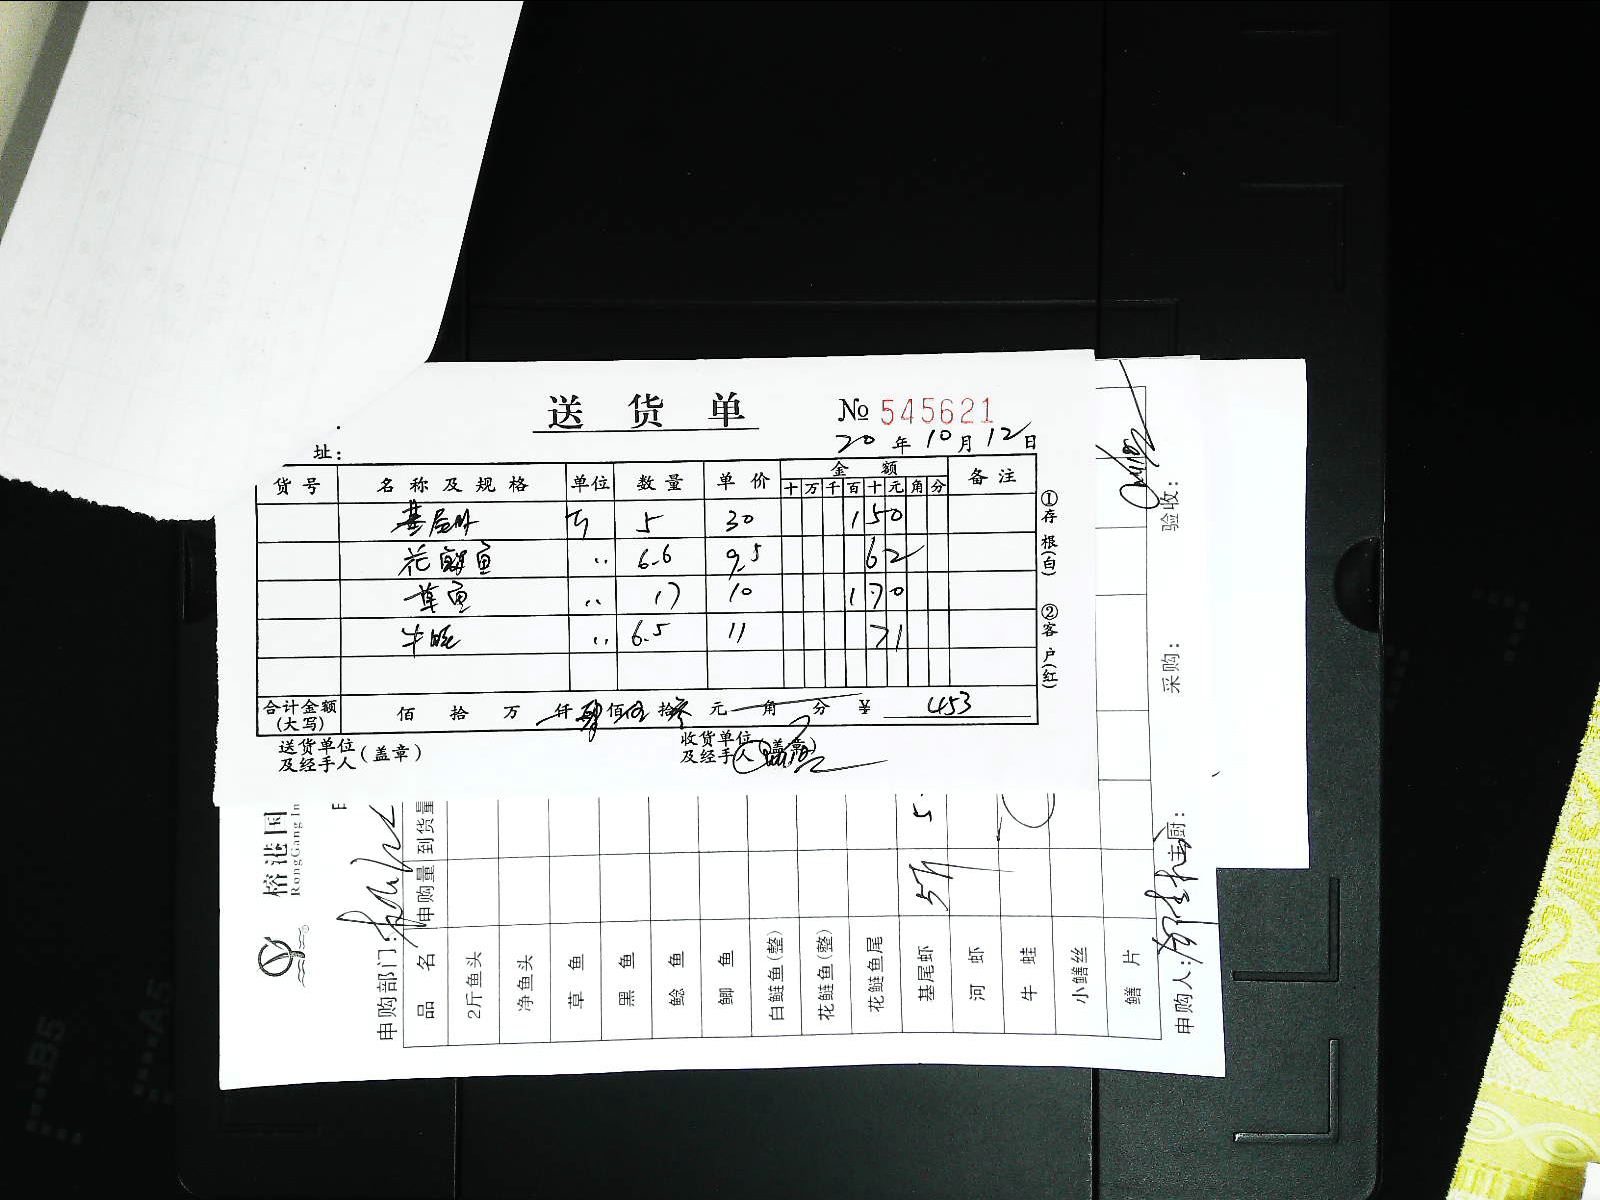 送货单
№ 545621
址：
20年10月12日
货号 名称及规格 单位 数量 单价 金额 备注
十 万 千 百 十 元 角 分
基尾虾 斤 5 30 150
花鲢鱼 〃 6.6 9.5 62
草鱼 〃 17 10 170
牛蛙 〃 6.5 11 71
合计金额(大写) 佰 拾 万 仟 肆佰伍拾叁元 角 分 ¥ 453
送货单位及经手人(盖章)
收货单位及经手人(盖章)
①存根(白)
②客户(红)
榕港国
RongGang In
申购部门：
品名 申购量 到货量
2斤鱼头
净鱼头
草鱼
黑鱼
鲶鱼
鲫鱼
白鲢鱼(整)
花鲢鱼(整)
花鲢鱼尾
基尾虾 5斤 5.
河虾
牛蛙
小鳝丝
鳝片
申购人： 主厨： 采购： 验收：
B5
A5